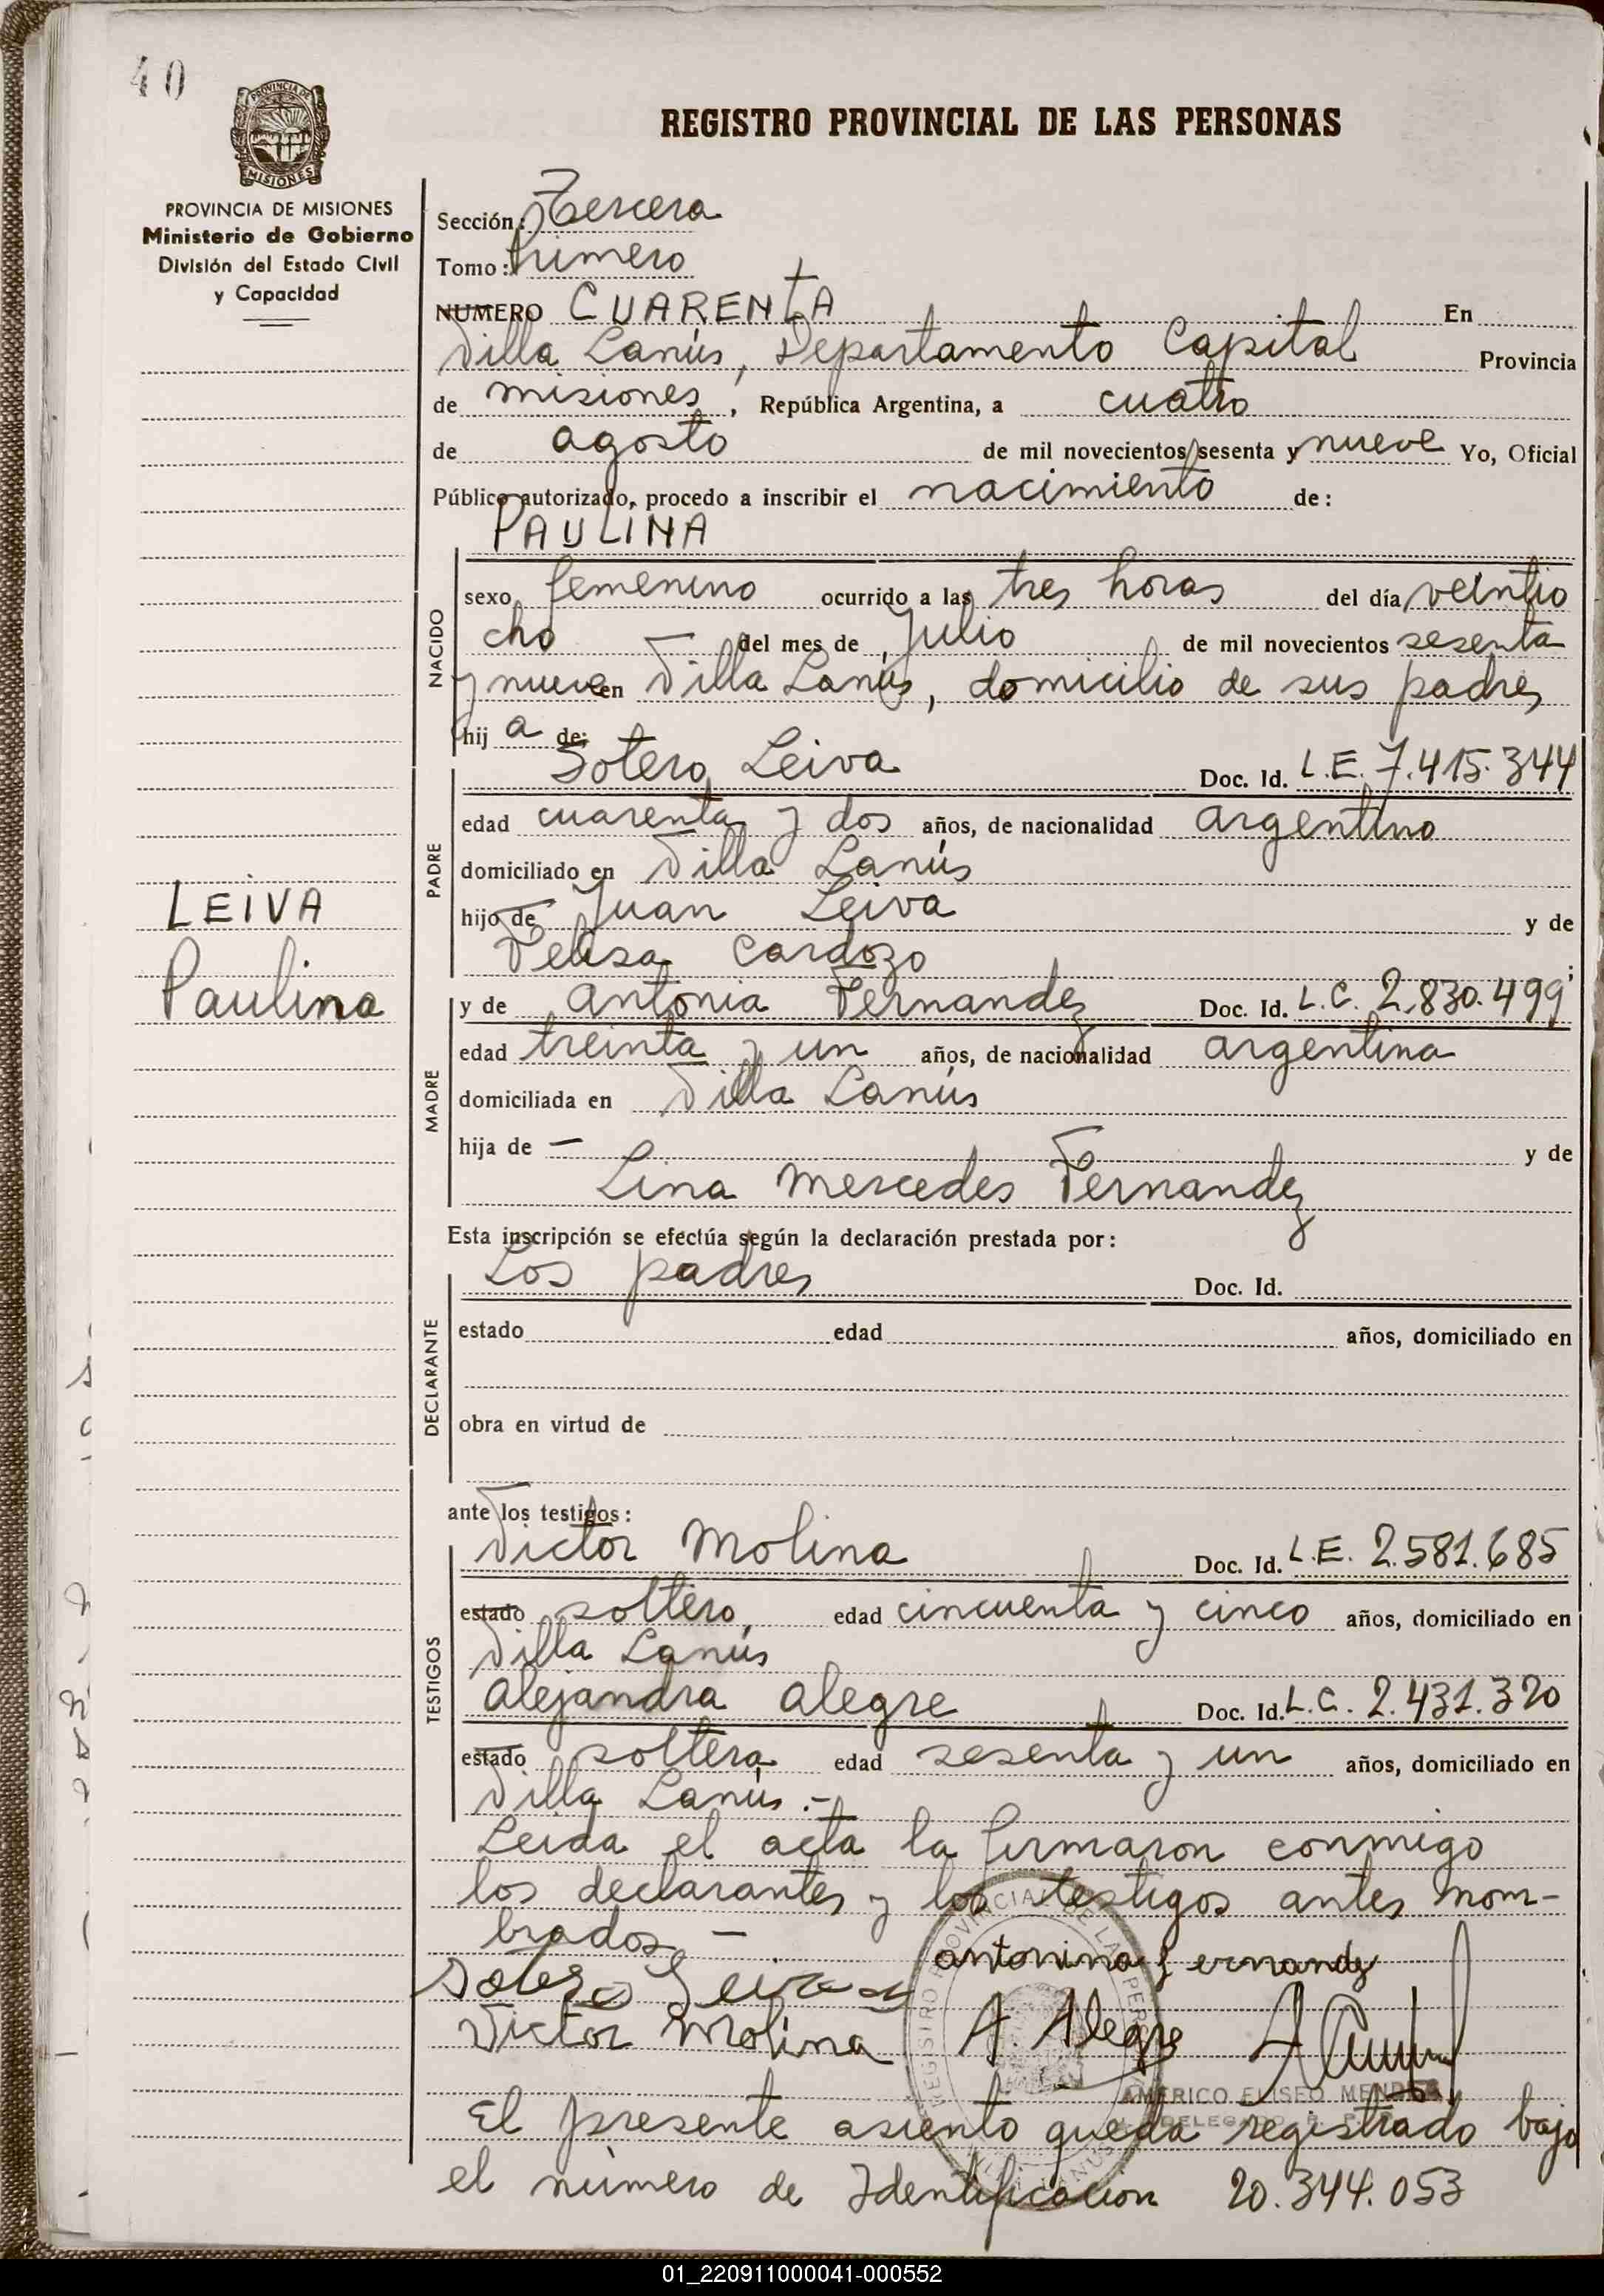 40
PROVINCIA DE
MISIONES
REGISTRO PROVINCIAL DE LAS PERSONAS
PROVINCIA DE MISIONES
Ministerio de Gobierno
División del Estado Civil
y Capacidad
Sección: Tercera
Tomo: Primero
NUMERO CUARENTA En
Villa Lanús, Departamento Capital Provincia
de misiones, República Argentina, a cuatro
de agosto de mil novecientos sesenta y nueve Yo, Oficial
Público autorizado, procedo a inscribir el nacimiento de:
PAULINA
NACIDO
sexo femenino ocurrido a las tres horas del día veintio
cho del mes de Julio de mil novecientos sesenta
y nueve en Villa Lanús, domicilio de sus padres
hij a de:
PADRE
Sotero Leiva Doc. Id. L.E. 7.415.344
edad cuarenta y dos años, de nacionalidad argentino
domiciliado en Villa Lanús
hijo de Juan Leiva y de
Felisa Cardozo ;
LEIVA
Paulina
MADRE
y de Antonia Fernandez Doc. Id. L.C. 2.830.499
edad treinta y un años, de nacionalidad argentina
domiciliada en Villa Lanús
hija de — y de
Lina Mercedes Fernandez
Esta inscripción se efectúa según la declaración prestada por:
DECLARANTE
Los padres Doc. Id.
estado edad años, domiciliado en
obra en virtud de
ante los testigos:
TESTIGOS
Victor Molina Doc. Id. L.E. 2.581.685
estado soltero edad cincuenta y cinco años, domiciliado en
Villa Lanús
Alejandra Alegre Doc. Id. L.C. 2.431.320
estado soltera edad sesenta y un años, domiciliado en
Villa Lanús.-
Leida el acta la firmaron conmigo
los declarantes y los testigos antes nom-
brados —
Sotero Leiva antonina Fernandz
Victor Molina A. Alegre
AMERICO ELISEO MENDEZ
DELEGADO R. P.
El presente asiento queda registrado bajo
el número de Identificación 20.344.053
01_220911000041-000552